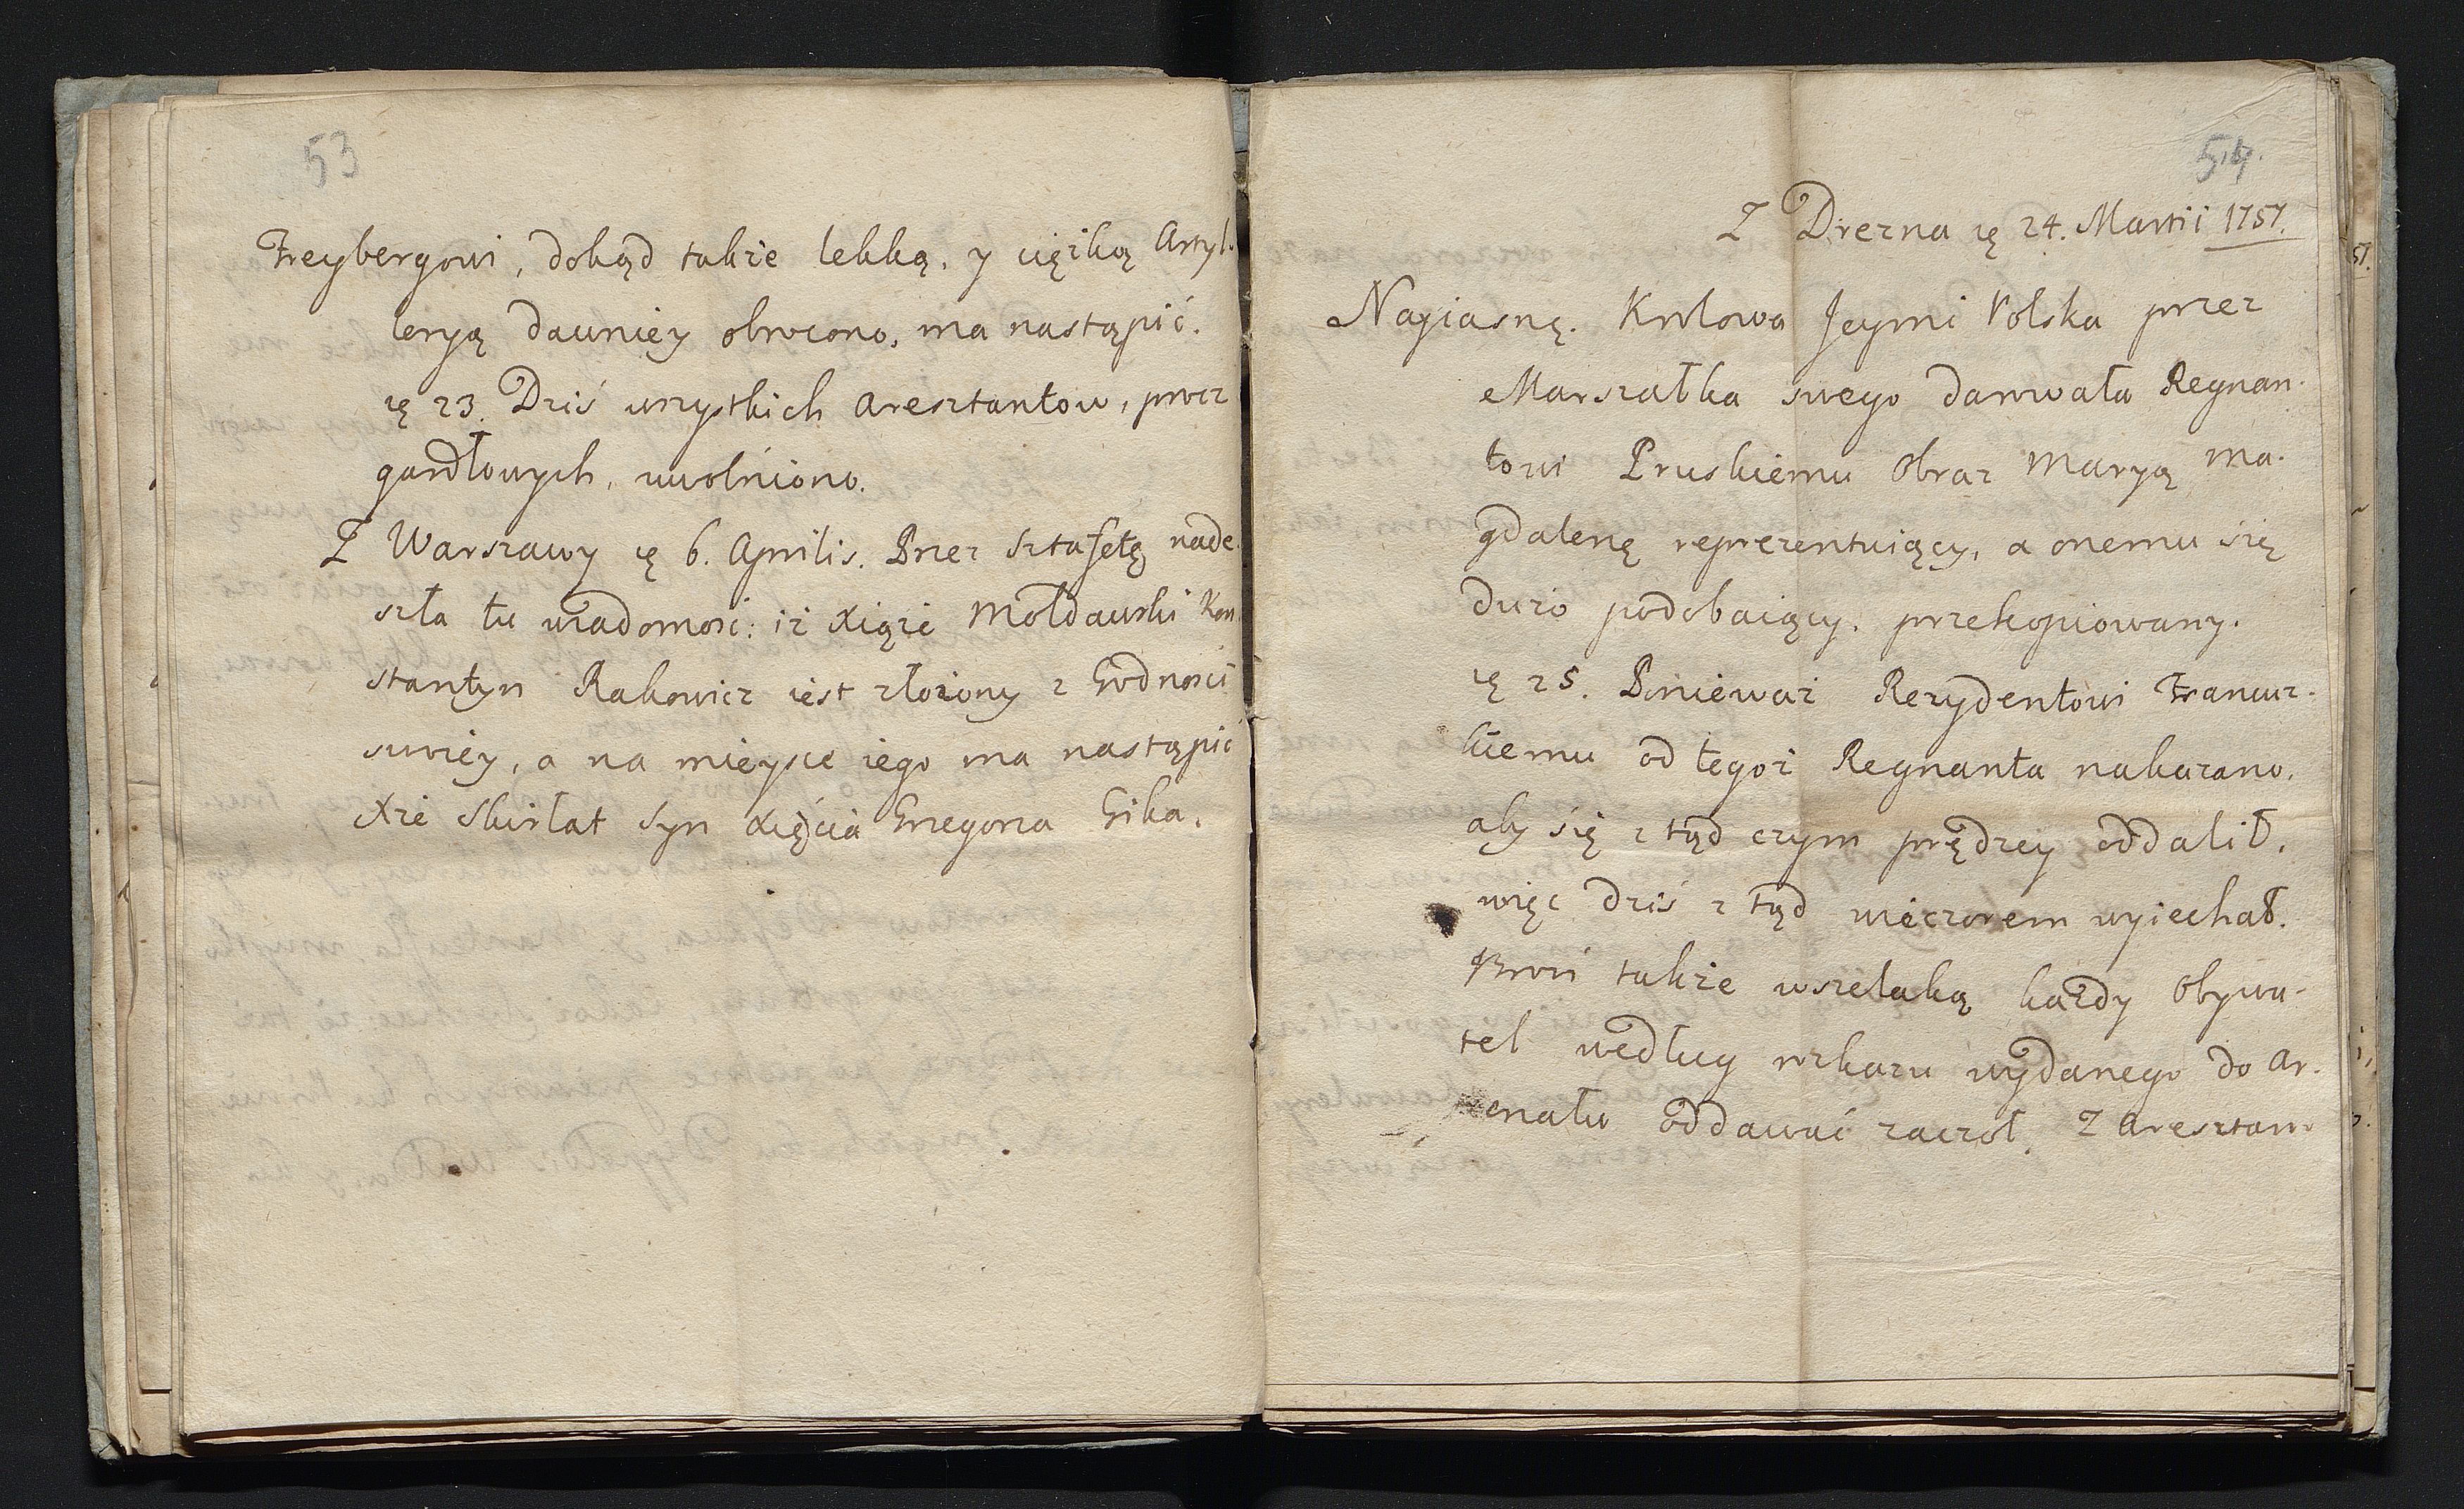 53
Freybergowi, dokąd także lekką, y ciężką Artyl-
leryą dawniéy obrocono, ma nastąpić.
ię 23. Dziś wszystkich aresztantow, procz
gardłowych, uwolniono.
Z Warszawy ię 6. Aprilis. Przez sztafetę nade-
szła tu wiadomość: iż xiąże Mołdawski Kon
stantyn Rakowicz iest złożony z Godności
swoiéy, a na mieysce iego ma nastąpić
Xże Skirlat syn xięćia Grzegorza Gika.
54.
Z Drezna ię 24. Martii 1757.
Nayiasnę. Krolowa Jeymć Polska przez
Marszałka swego darowała Regnan-
towi Pruskiemu Obraz Maryą Ma-
gdalenę reprezentuiący, a onemu się
dużo podobaiący, przekopiowany.
ię 25. Ponieważ Rezydentowi Francuz-
kiemu od tegoż Regnanta nakazano,
aby się z tąd czym prędzey oddalił,
więc dziś z tąd wieczorem wyiechał.
Broń także wszelaką każdy Obywa-
tel według rozkazu wydanego do Ar-
zenału oddawać zaczoł. Z Aresztan-